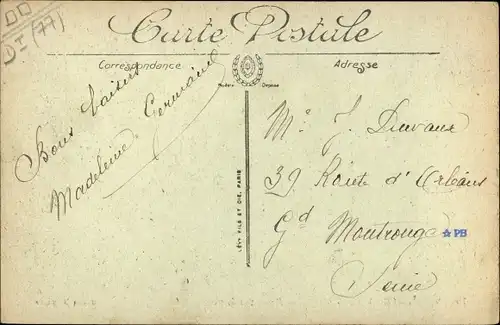 I (77)
Carte Postale
Correspondance
Adresse
Modèle Déposé
Bons baisers
Madeleine Germaine
LÉVY FILS ET CIE, PARIS
Mr J. Duvaux
39 Route d'Orléans
Gd Montrouge
☆PB
Seine